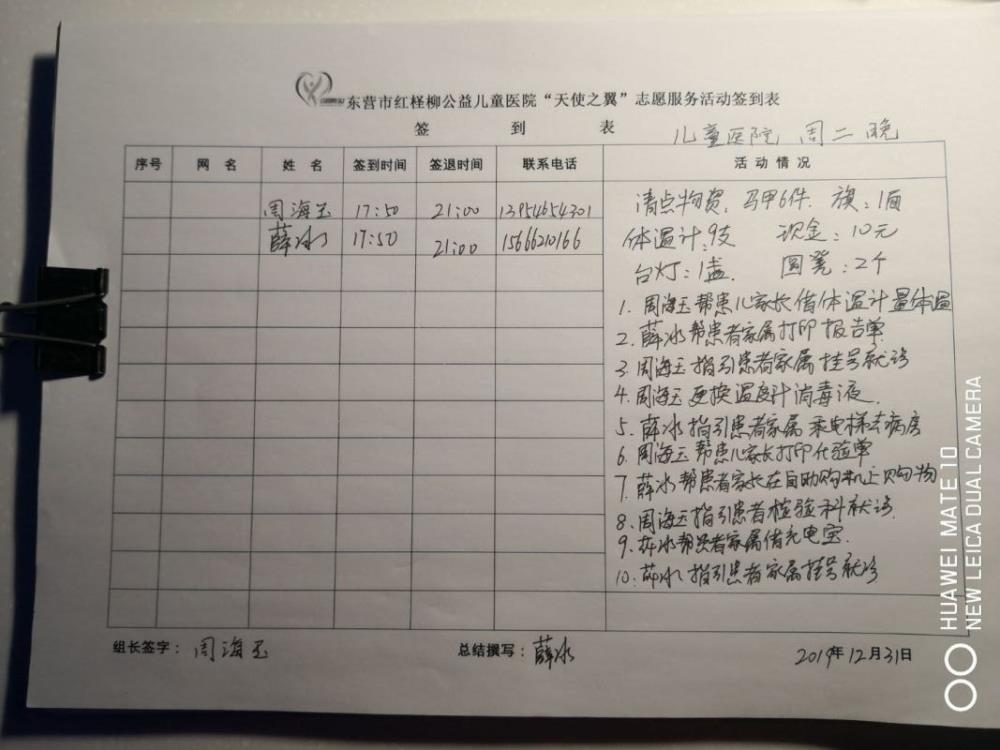 东营市红柽柳公益儿童医院“天使之翼”志愿服务活动签到表
签 到 表
儿童医院 周二晚
序号 网 名 姓 名 签到时间 签退时间 联系电话 活 动 情 况
周海玉 17:50 21:00 13954654301
薛冰 17:50 21:00 15666210166
清点物资, 马甲6件. 旗:1面
体温计:9支 现金:10元
台灯:1盏. 圆凳:2个
1. 周海玉帮患儿家长借体温计量体温
2. 薛冰帮患者家属打印报告单
3. 周海玉指引患者家属挂号就诊
4. 周海玉更换温度计消毒液.
5. 薛冰指引患者家属乘电梯去病房
6. 周海玉帮患儿家长打印化验单
7. 薛冰帮患者家长在自助购机上购物
8. 周海玉指引患者检验科就诊.
9. 薛冰帮患者家属借充电宝.
10. 薛冰指引患者家属挂号就诊
组长签字: 周海玉 总结撰写: 薛冰 2019年12月31日
HUAWEI MATE 10
NEW LEICA DUAL CAMERA